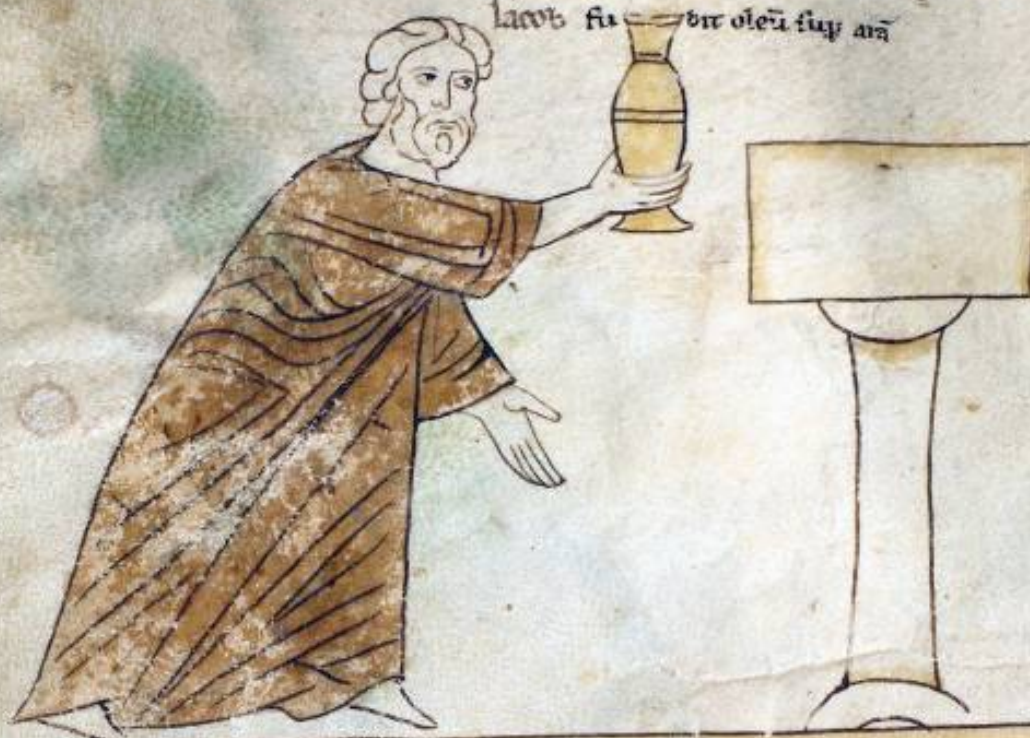 Iacob fu dit oleū sup arā